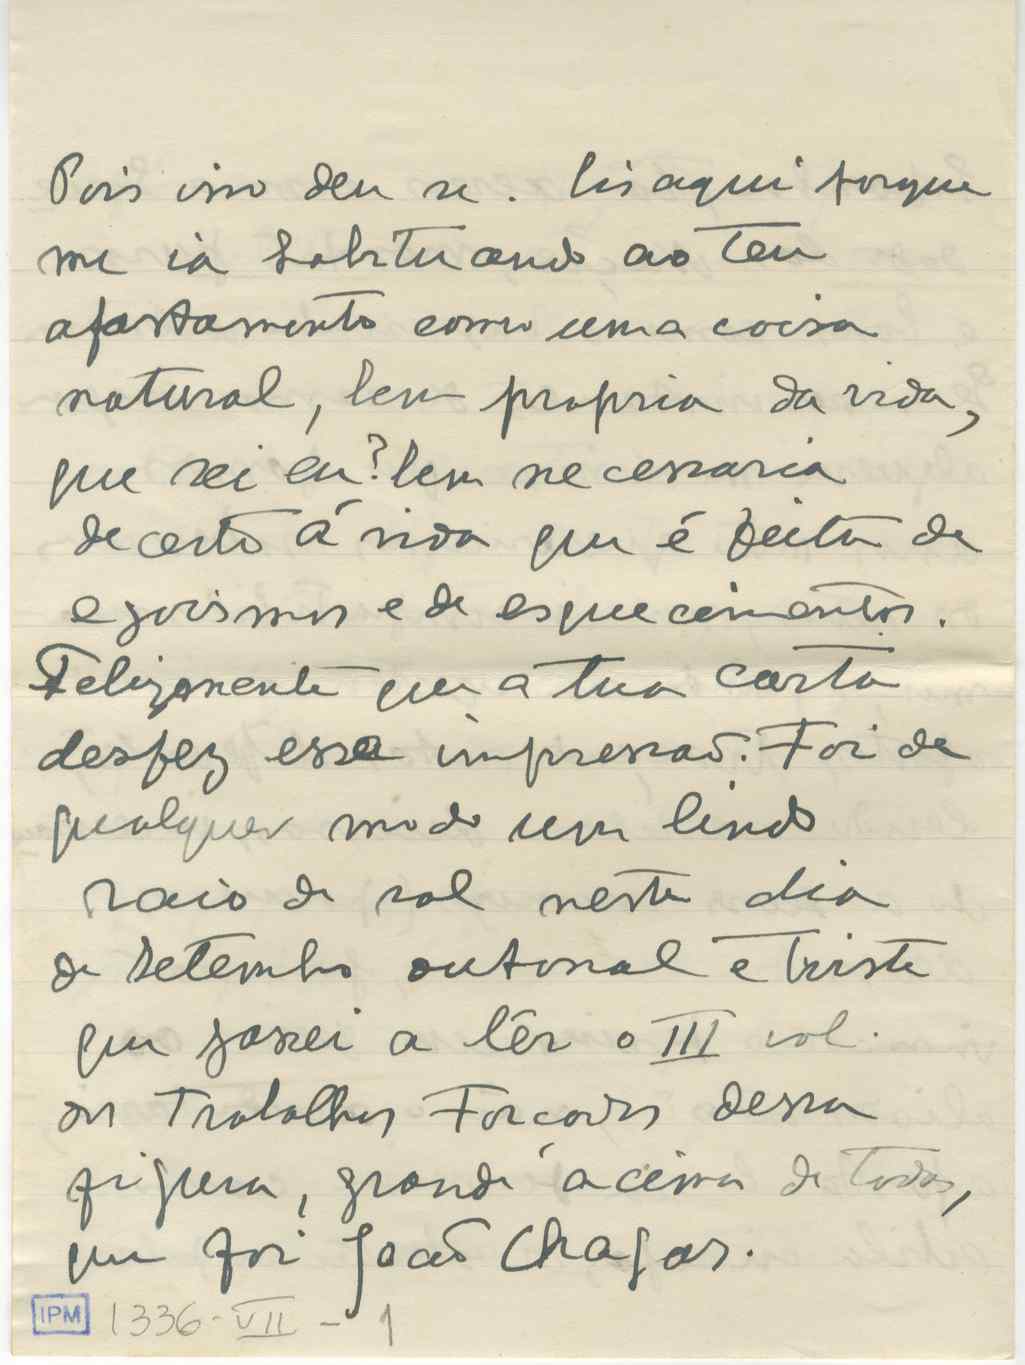 Pois isso deu se. Eis aqui porque
me ia habituando ao teu
afastamento como uma coisa
natural, bem propria da vida,
que sei eu? bem necessaria
decerto á vida que é feita de
egoismos e de esquecimentos.
Felizmente que a tua carta
desfez essa impressão. Foi de
qualquer modo um lindo
raio de sol neste dia
de Setembro outonal e triste
que passei a lêr o III vol.
dos Trabalhos Forcados dessa
figura, grande acima de todas,
que foi João Chagas.
IPM 1336-VII-1